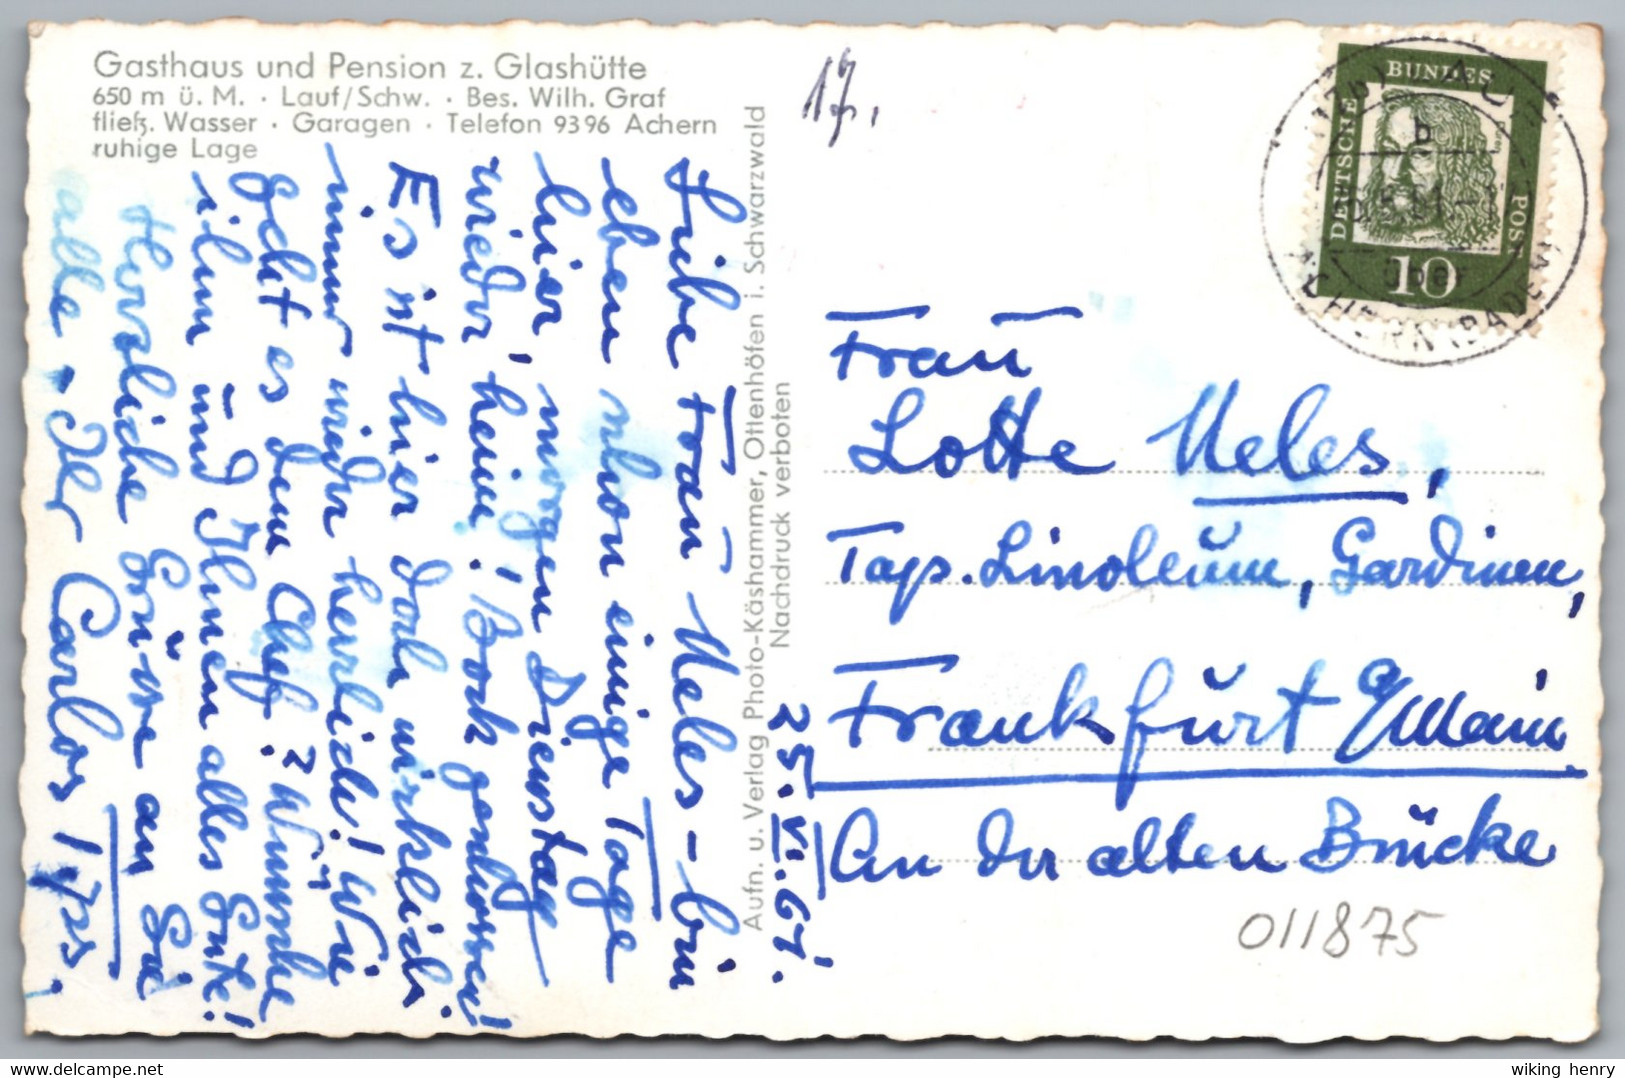 Gasthaus und Pension z. Glashütte
650 m ü. M. · Lauf/Schw. · Bes. Wilh. Graf
fließ. Wasser · Garagen · Telefon 9396 Achern
ruhige Lage
17.
BUNDES
DEUTSCHE
POST
10
ACHERN (BADEN)
Liebe Frau Meles - bin
eben schon einige Tage
hier, morgen Dienstag
wieder heim! Hoch genossen!
Es ist hier doch wirklich
immer wieder herrlich! Wie
geht es dem Chef? Wünsche
ihm und Ihnen alles Gute!
Herzliche Grüsse an Sie
alle - Ihr Carlos
Aufn. u. Verlag Photo-Käshammer, Ottenhöfen i. Schwarzwald
Nachdruck verboten
25. VI. 61.
Frau
Lotte Meles,
Tap. Linoleum, Gardinen,
Frankfurt / Main
An der alten Brücke
011875
wiking henry